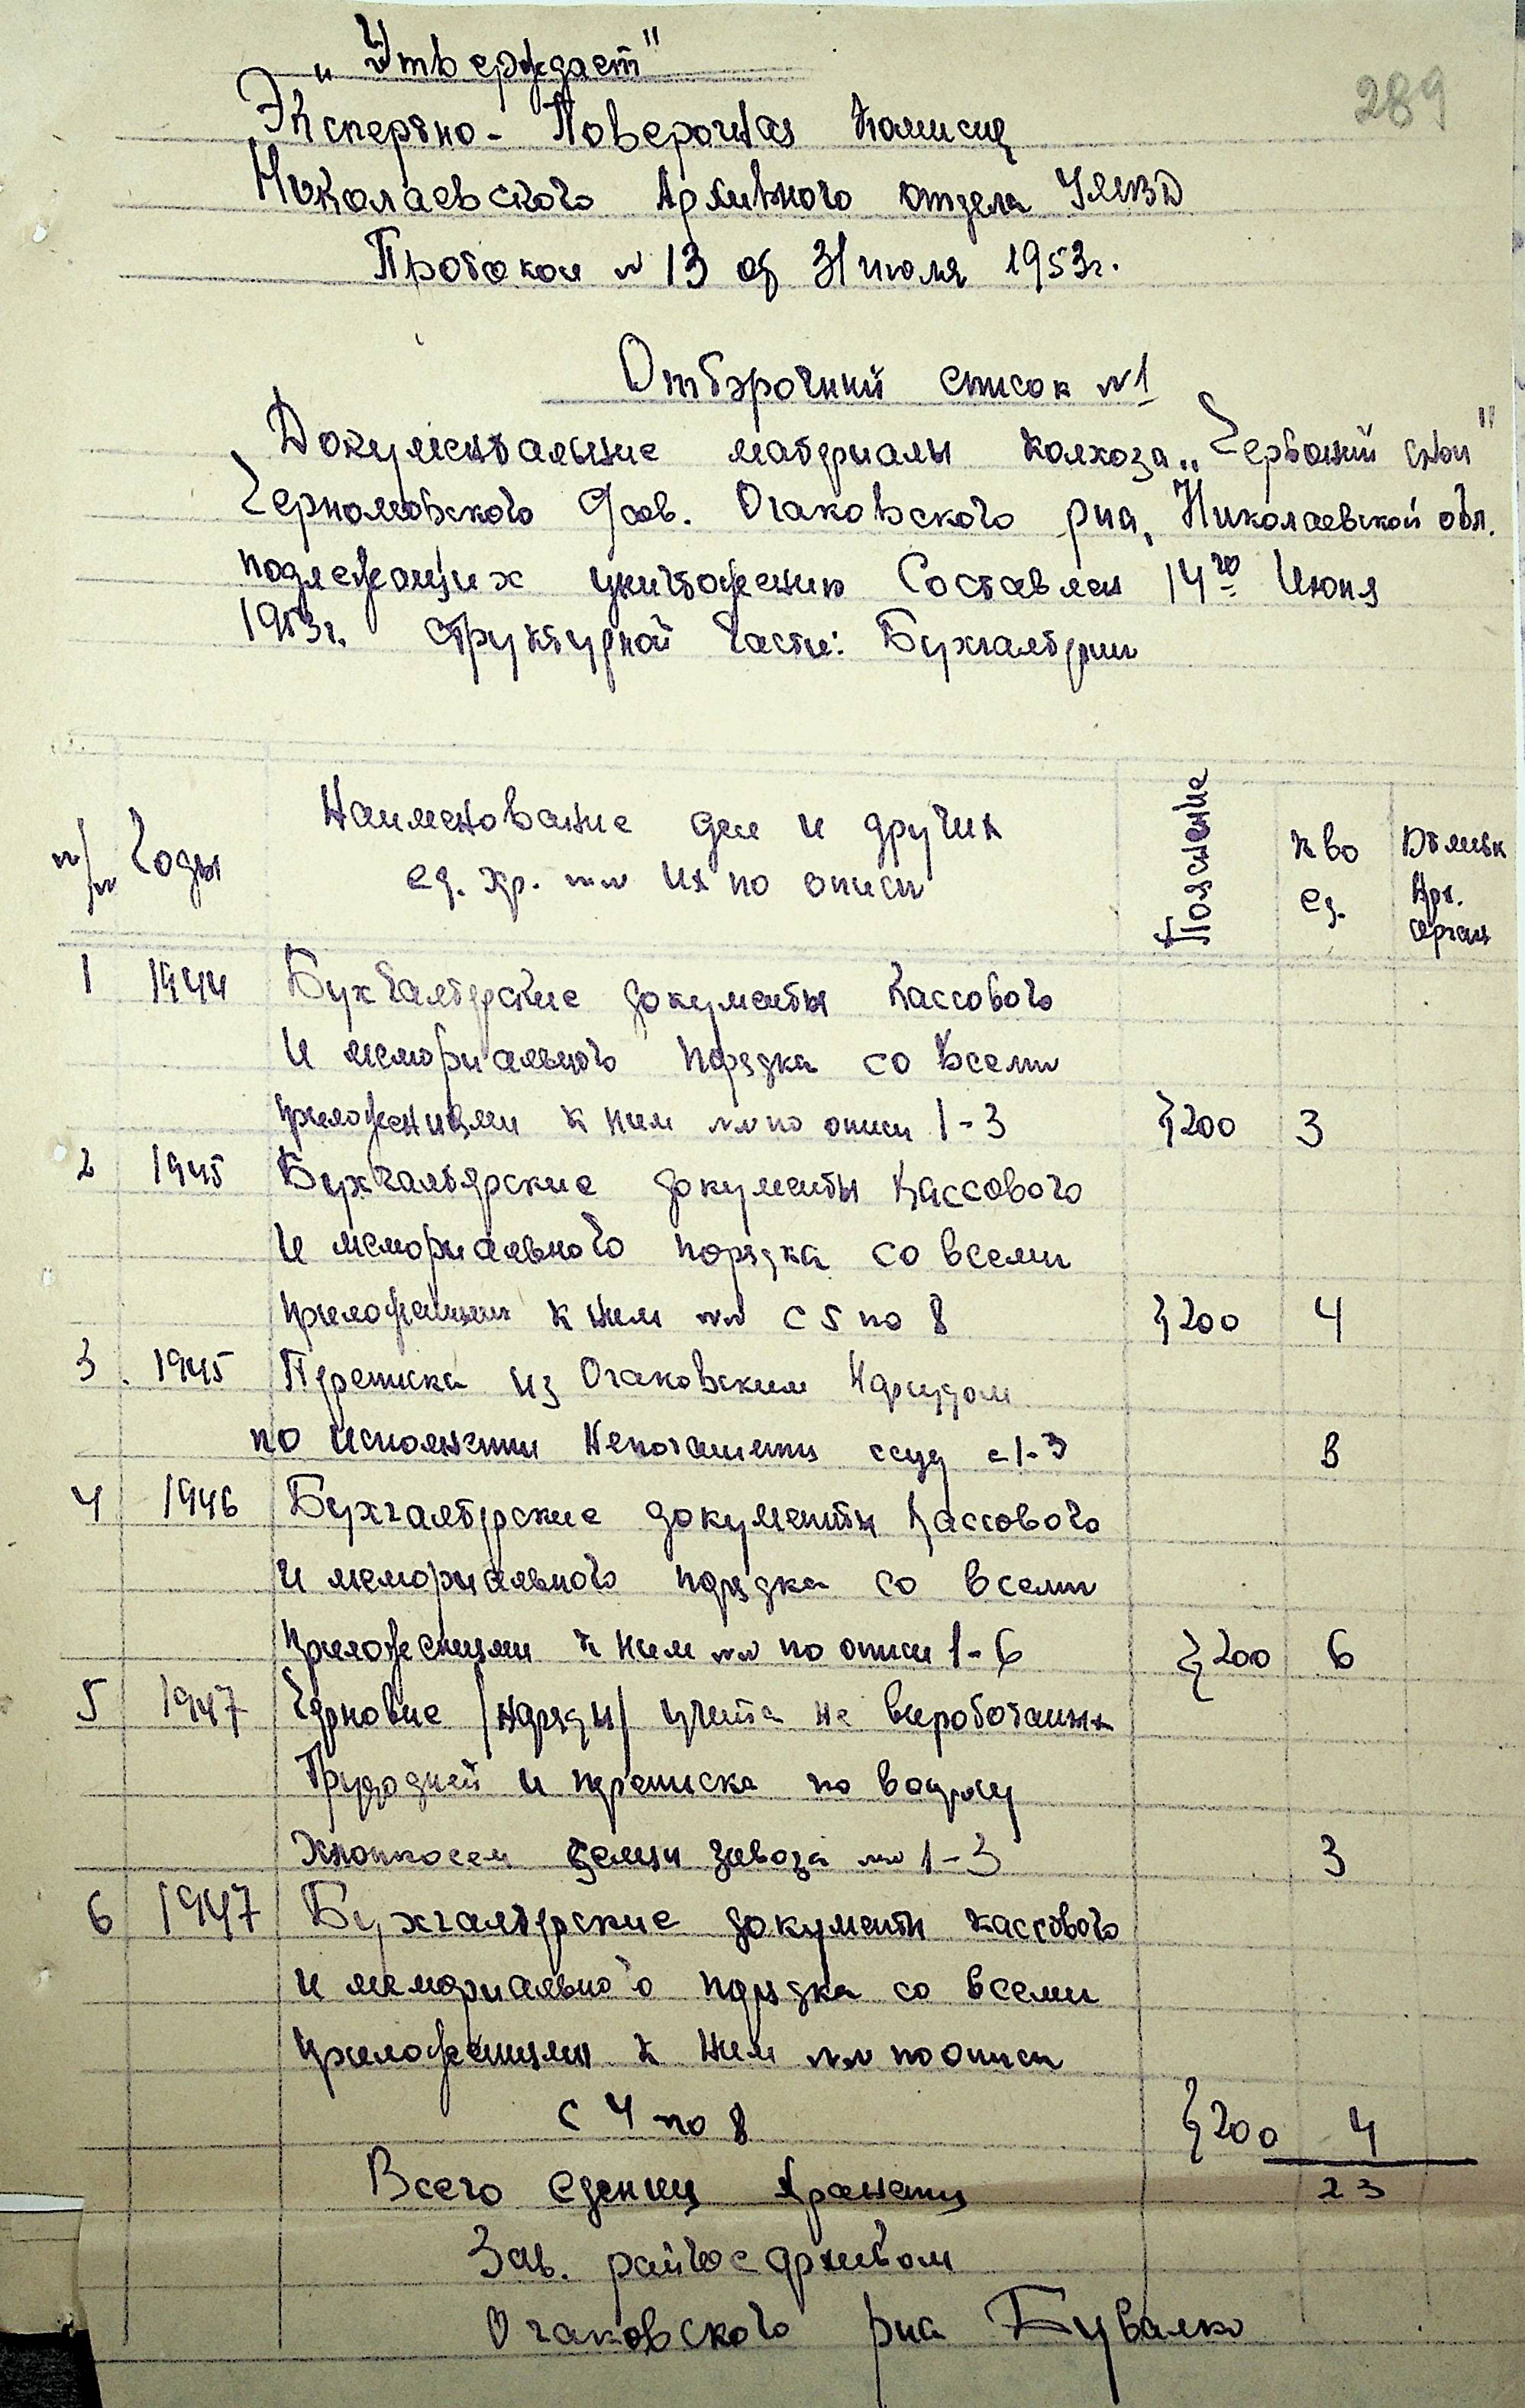 289
„Утверждает"
Эксперно-Поверочная Комисия
Николаевского Архивного отдела УМВД
Протокол № 13 от 31 июля 1953г.
Отборочний список №1
Документальние материалы колхоза „Червоний
Черноморского с/сов. Очаковского р-на, Николаевской обл.
подлежащих уничтожению Составлен 14го Июня
1953г. структурной части: Бухгалтерии
Наименование дел и других
ед. хр. №№ их по описи
№/№
Годы
Пояснение
К во
ед.
Отметк
Арх.
орган
1 1944 Бухгалтерские документы Кассового
и мемориального порядка со всеми
приложениями к ним №№ по описи 1-3 § 200 3
2 1945 Бухгалтерские документы Кассового
и мемориального порядка со всеми
приложениями к ним №№ с 5 по 8 § 200 4
3 1945 Переписка из Очаковским Нарсудом
по исполнении Непогашении ссуд с 1-3 3
4 1946 Бухгалтерские документы Кассового
и мемориального порядка со всеми
приложениями к ним №№ по описи 1-6 § 200 6
5 1947 Черновие /наряди/ учета не виработаних
Трудодней и переписка по
завоза №№ 1-3 3
6 1947 Бухгалтерские документи кассового
и мемориального порядка со всеми
приложениями к ним №№ по описи
с 4 по 8 § 200 4
Всего едениц хранения 23
Зав. райгосархивом
Очаковского р-на Бувалко